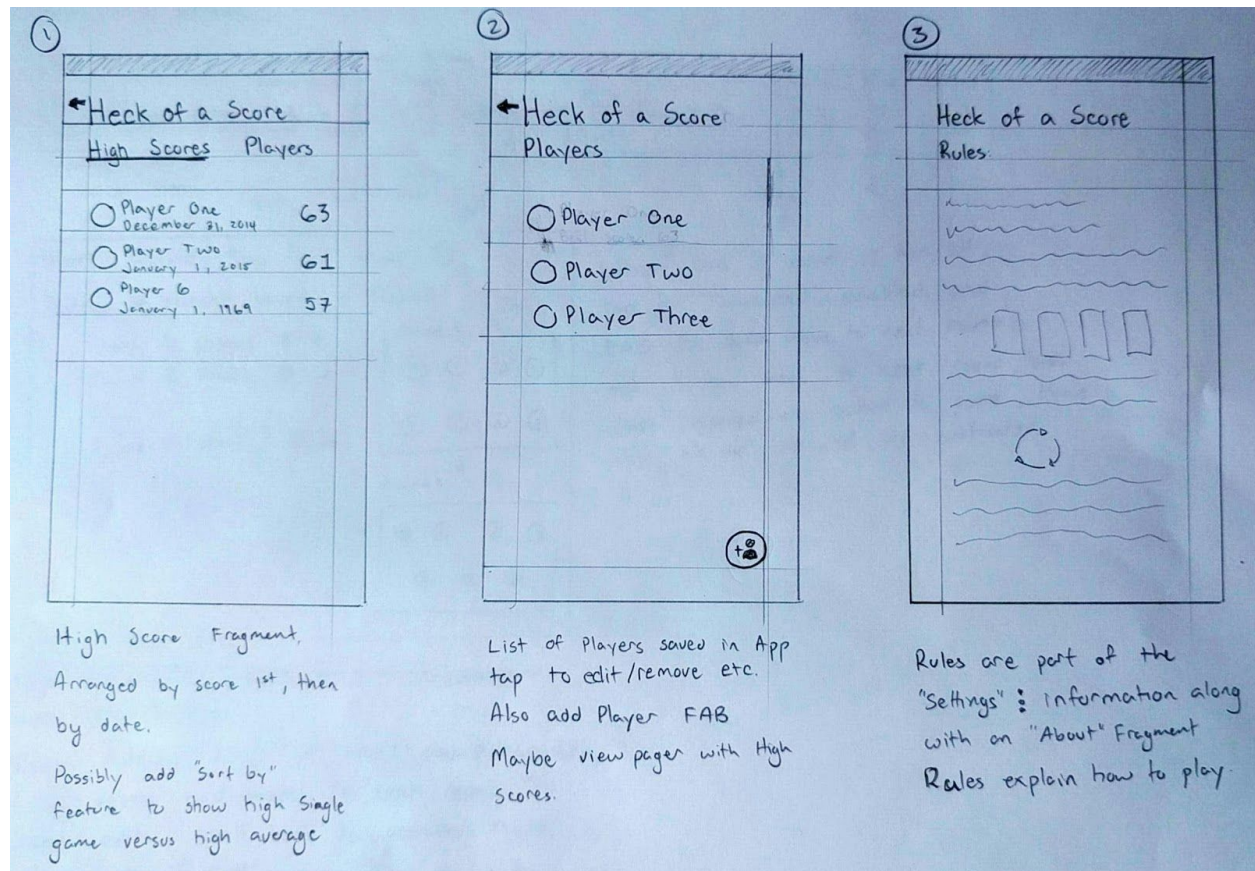 1
Heck of a Score
High Scores Players
Player One 63
December 31, 2014
Player Two 61
January 1, 2015
Player 6 57
January 1, 1969
High Score Fragment.
Arranged by score 1st, then
by date.
Possibly add "Sort by"
feature to show high Single
game versus high average
2
Heck of a Score
Players
Player One
Player Two
Player Three
+
List of Players saved in App
tap to edit/remove etc.
Also add Player FAB
Maybe view pager with High
Scores.
3
Heck of a Score
Rules
Rules are part of the
"Settings" information along
with an "About" Fragment
Rules explain how to play